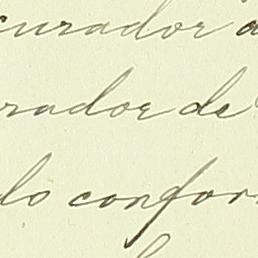 curador
rador de
do confor